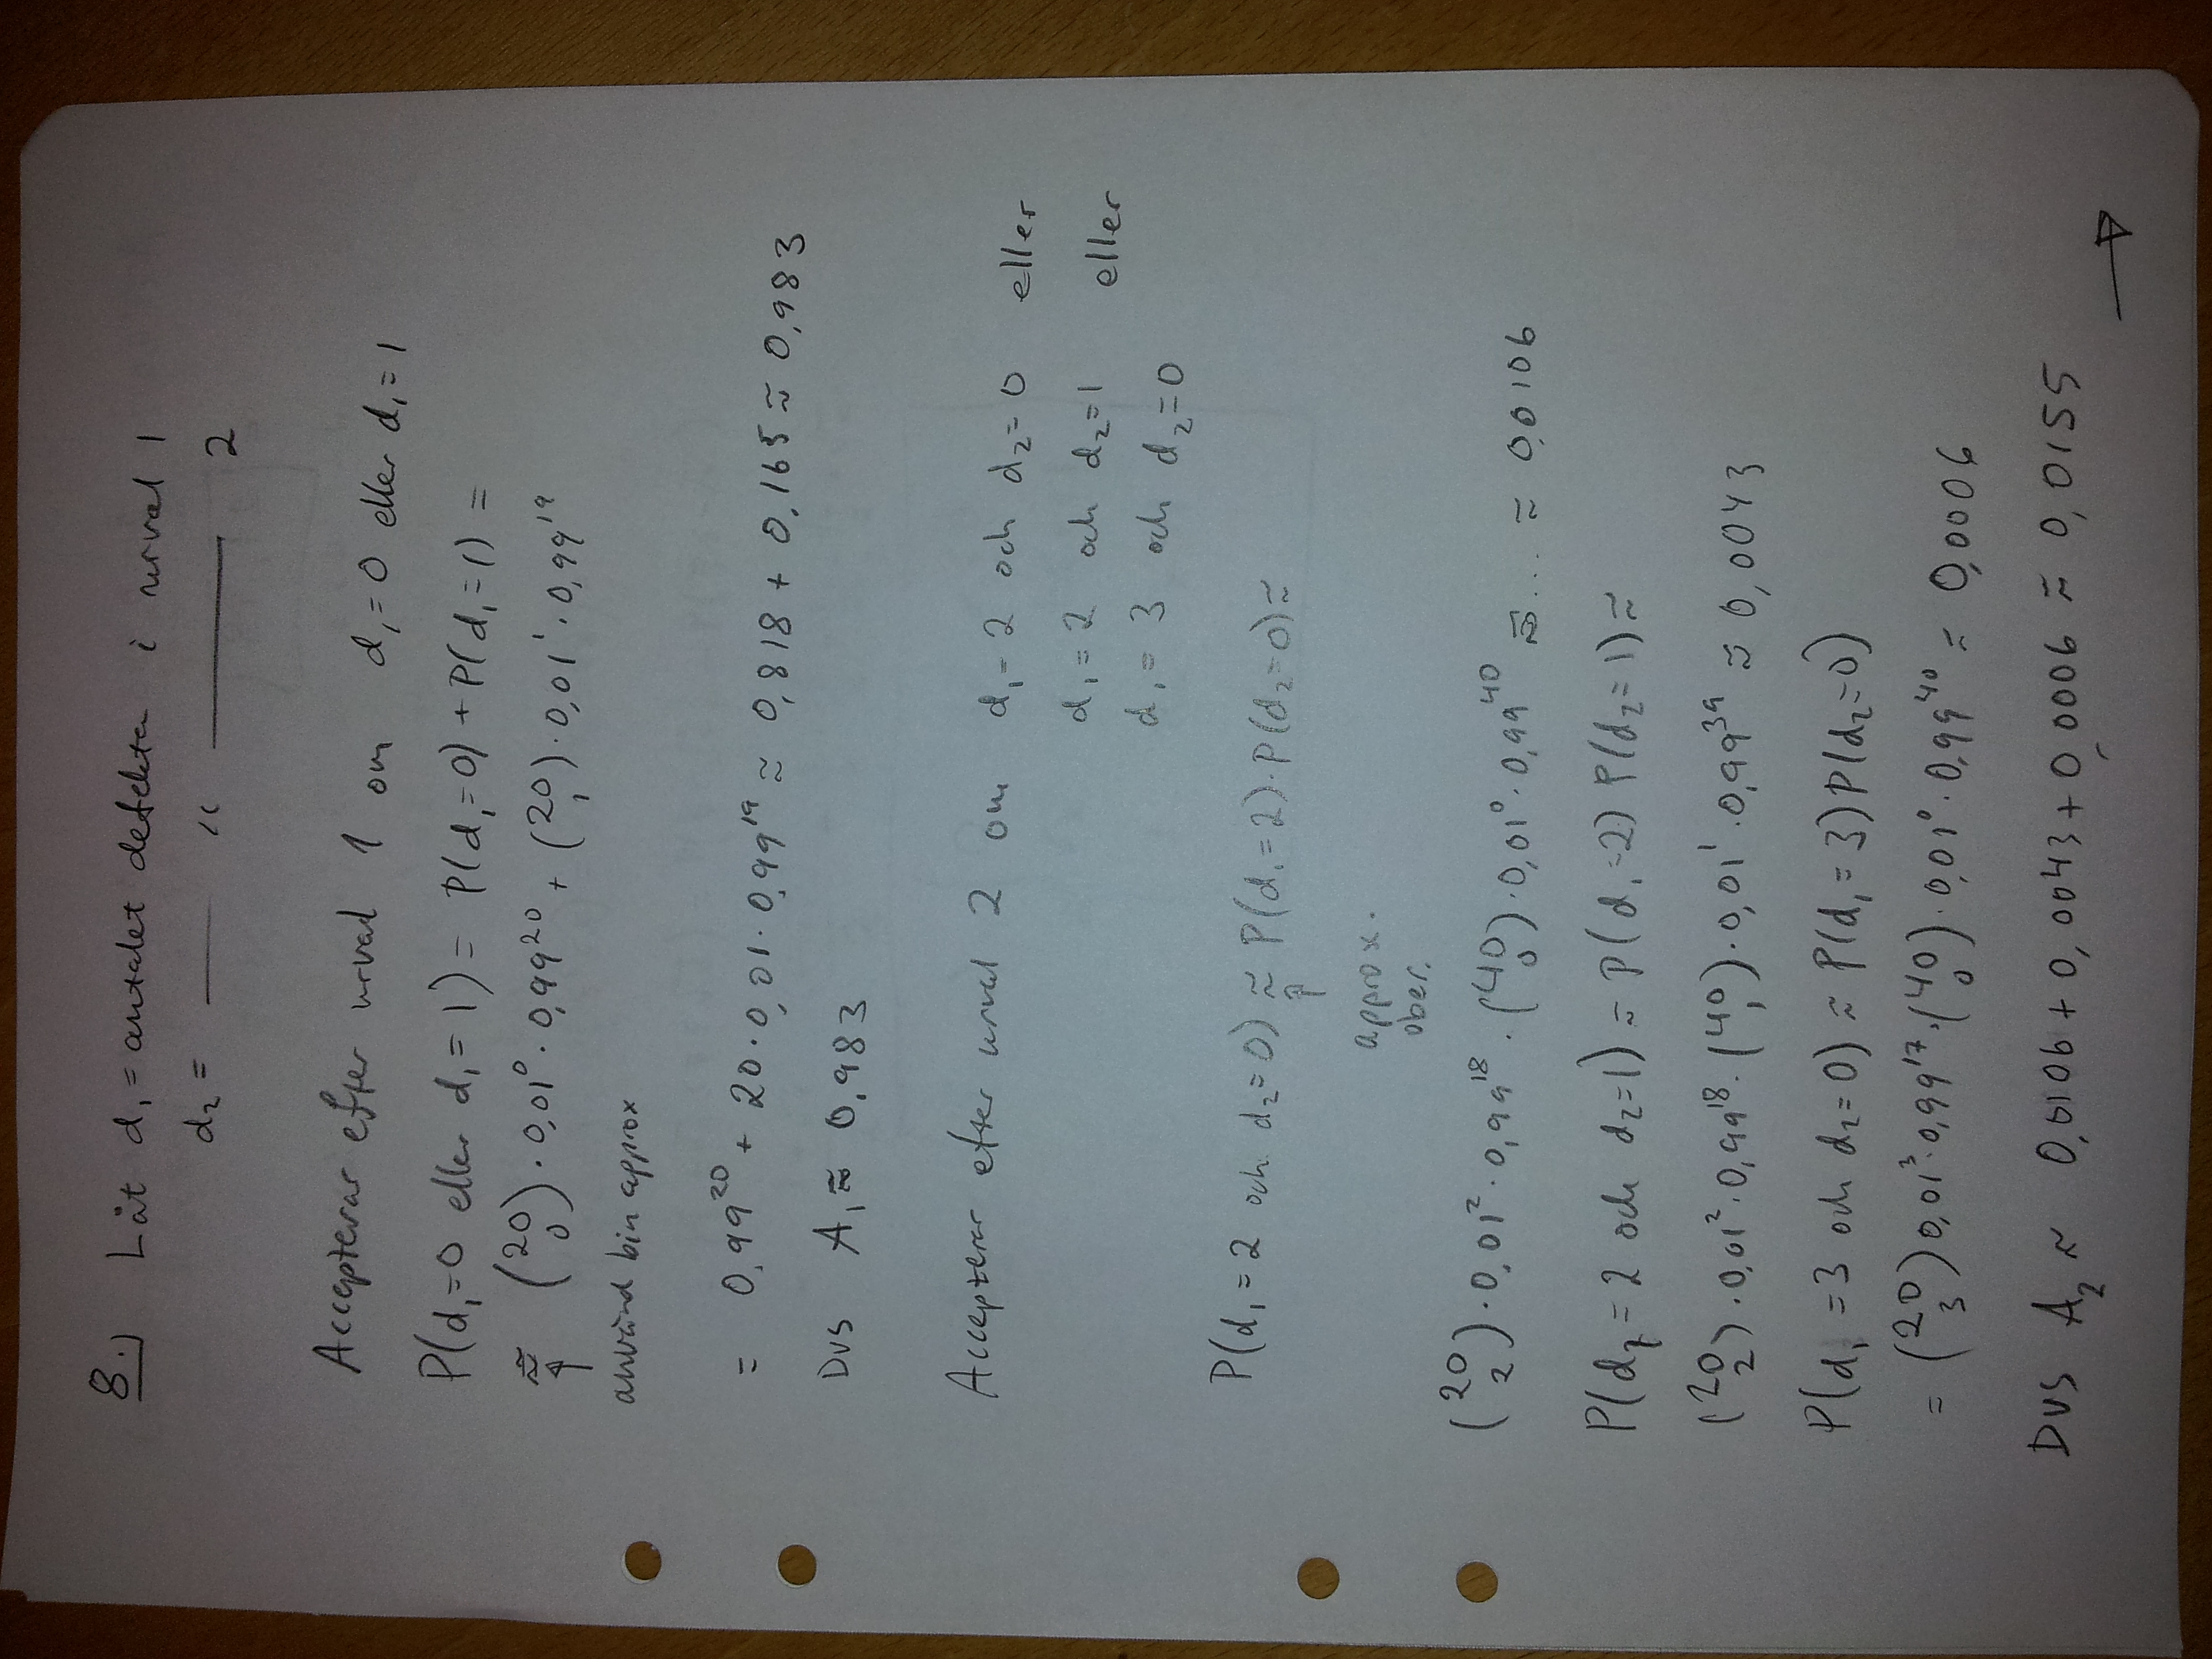 8.) Låt d₁ = antalet defekta i urval 1
d₂ = —— " —— 2
Accepterar efter urval 1 om d₁=0 eller d₁=1
P(d₁=0 eller d₁=1) = P(d₁=0)+P(d₁=1) =
≈ (20 0)·0,01⁰·0,99²⁰ + (20 1)·0,01¹·0,99¹⁹
använd bin approx
= 0,99²⁰ + 20·0,01·0,99¹⁹ ≈ 0,818 + 0,165 ≈ 0,983
Dvs A₁ ≈ 0,983
Accepterar efter urval 2 om d₁=2 och d₂=0 eller
d₁=2 och d₂=1 eller
d₁=3 och d₂=0
P(d₁=2 och d₂=0) ≈ P(d₁=2)·P(d₂=0) ≈
approx.
ober.
(20 2)·0,01²·0,99¹⁸·(40 0)·0,01⁰·0,99⁴⁰ ≈ ... ≈ 0,0106
P(d₁=2 och d₂=1) ≈ P(d₁=2) P(d₂=1) ≈
(20 2)·0,01²·0,99¹⁸·(40 1)·0,01¹·0,99³⁹ ≈ 0,0043
P(d₁=3 och d₂=0) ≈ P(d₁=3)P(d₂=0)
= (20 3)0,01³·0,99¹⁷·(40 0)·0,01⁰·0,99⁴⁰ ≈ 0,0006
Dvs A₂ ≈ 0,0106+0,0043+0,0006 ≈ 0,0155